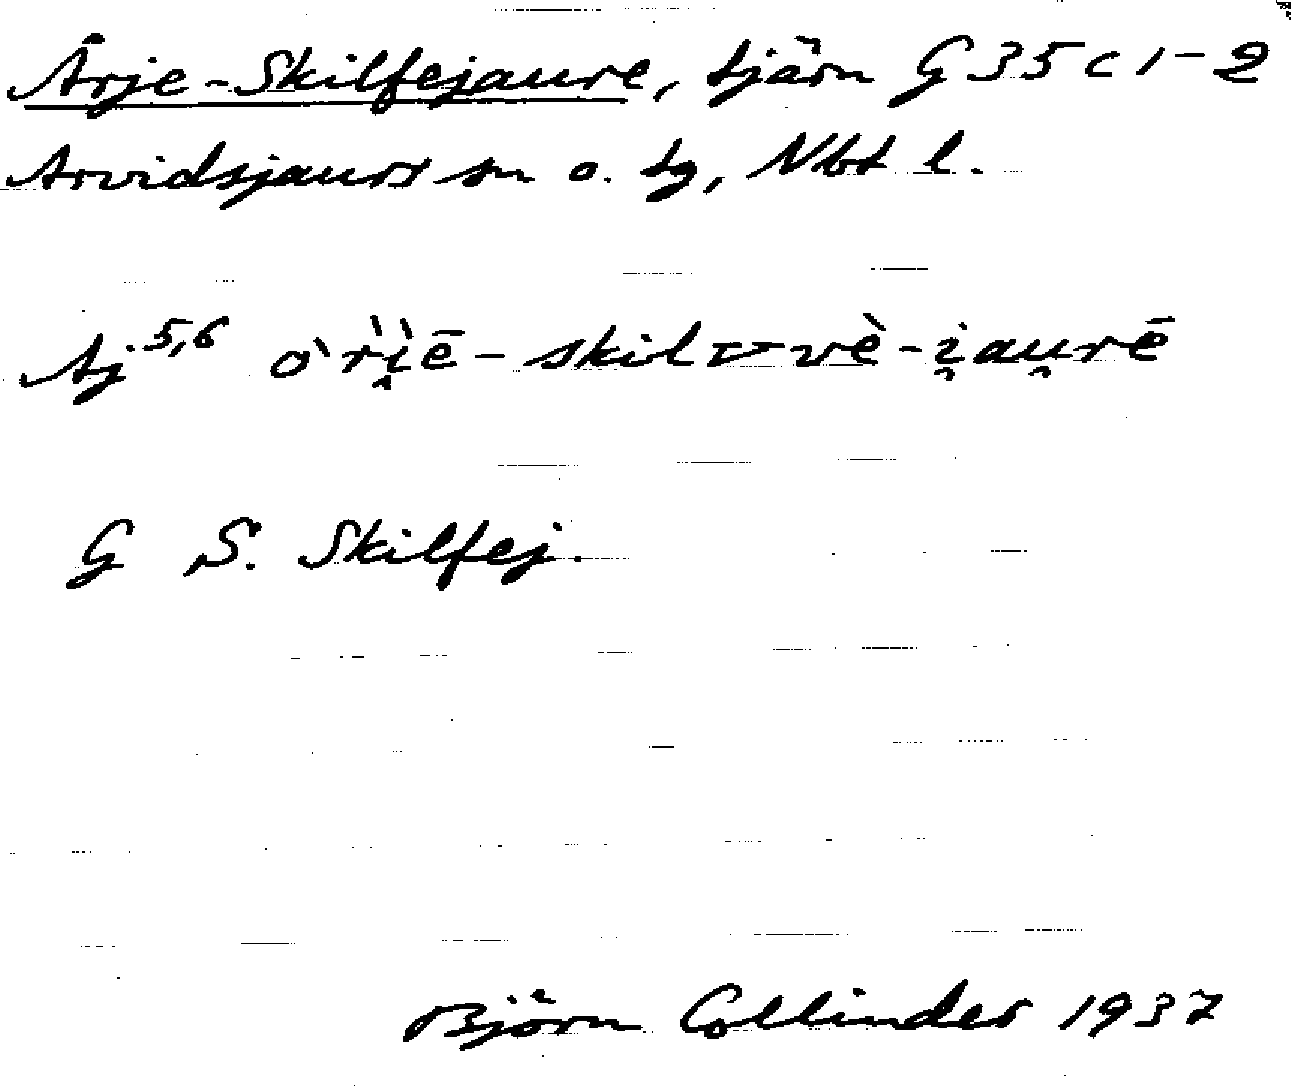 Årje-Skilfejaure, tjärn G 35 c 1-2
Arvidsjaurs sn o. tg, Nbt l.
Aj 5,6 o̊̀ri̯ē-skilvvè-i̯au̯rē
G S. Skilfej.
Björn Collinder 1937